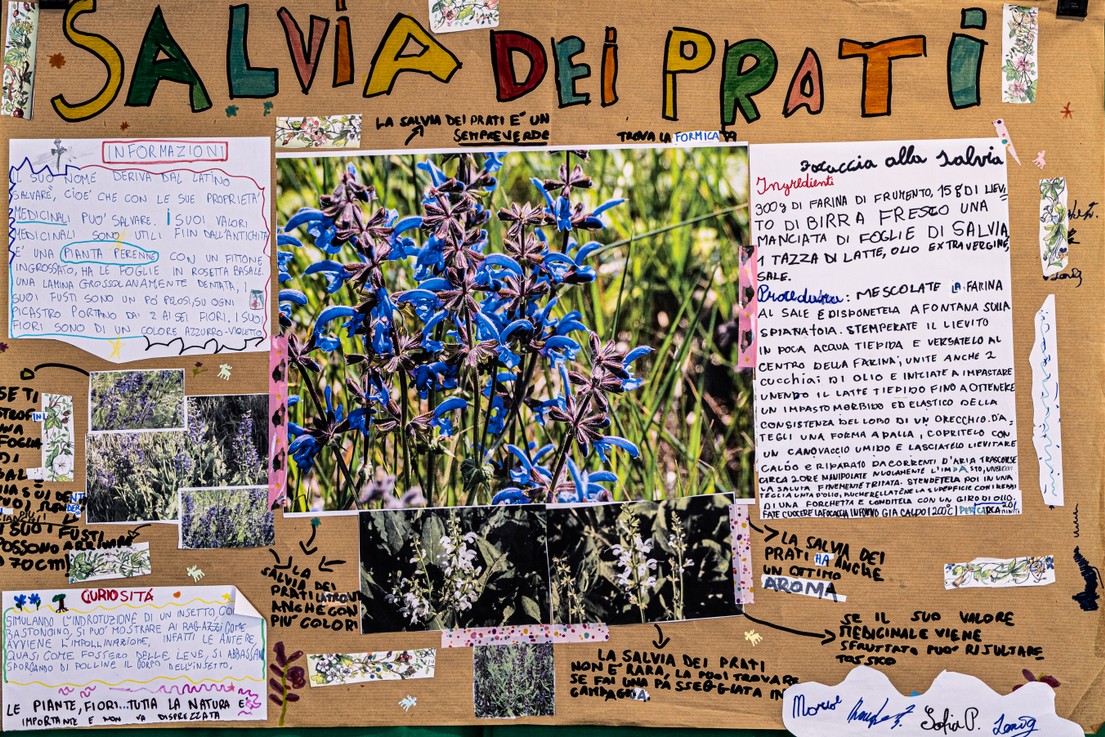 SALVIA DEI PRATI
LA SALVIA DEI PRATI E' UN
SEMPREVERDE
TROVA LA FORMICA
INFORMAZIONI
IL SUO NOME DERIVA DAL LATINO
SALVARE, CIOE' CHE CON LE SUE PROPRIETA'
MEDICINALI PUO' SALVARE. I SUOI VALORI
MEDICINALI SONO UTILI FIN DALL'ANTICHITA
E' UNA PIANTA PERENNE CON UN FITTONE
INGROSSATO, HA LE FOGLIE IN ROSETTA BASALE.
UNA LAMINA GROSSOLANAMENTE DENTATA, I
SUOI FUSTI SONO UN PO' SU OGNI
PICASTRO PORTANO DAI 2 AI SEI FIORI, I SUOI
FIORI SONO DI UN COLORE AZZURRO-VIOLETTO
Focaccia alla salvia
Ingredienti
300g DI FARINA DI FRUMENTO, 15 g DI LIEVI
TO DI BIRRA FRESCO UNA
MANCIATA DI FOGLIE DI SALVIA
1 TAZZA DI LATTE, OLIO EXTRAVERGINE
SALE.
Procedura: MESCOLATE LA FARINA
AL SALE E DISPONETELA A FONTANA SULLA
SPIANATOIA. STEMPERATE IL LIEVITO
IN POCA ACQUA TIEPIDA E VERSATELO AL
CENTRO DELLA FARINA; UNITE ANCHE 2
CUCCHIAI DI OLIO E INIZIATE A IMPASTARE
UNENDO IL LATTE TIEPIDO FINO A OTTENERE
UN IMPASTO MORBIDO ED ELASTICO DELLA
CONSISTENZA DEL LOBO DI UN ORECCHIO. DA-
TEGLI UNA FORMA A PALLA, COPRITELO CON
UN CANOVACCIO UMIDO E LASCIATELO LIEVITARE
CALDO E RIPARATO DA CORRENTI D'ARIA TRASCORSE
CIRCA 2 ORE MANIPOLATE NUOVAMENTE L'IMPASTO,
LA SALVIA FINEMENTE TRITATA. STENDETELA POI IN UNA
TEGLIA UNTA D'OLIO, BUCHERELLATENE LA SUPERFICIE CON I REBBI
DI UNA FORCHETTA E CONDITELA CON UN GIRO DI OLIO.
FATE CUOCERE LA FOCACCIA IN FORNO GIA CALDO (200°C) PER CIRCA 20
SE TI
FOGLIA
DI
I SUOI FUSTI
POSSONO ARRIVARE
70CM
LA
SALVIA DEI
PRATI
ANCHE CON
PIU' COLORI
LA SALVIA DEI
PRATI HA ANCHE
UN OTTIMO
AROMA
SE IL SUO VALORE
MEDICINALE VIENE
SFRUTTATO PUO' RISULTARE
TOSSICO
LA SALVIA DEI PRATI
NON E' RARA, LA PUOI TROVARE
SE FAI UNA PASSEGGIATA IN
CAMPAGNA
CURIOSITÁ
SIMULANDO L'INDROTUZIONE DI UN INSETTO CON
BASTONCINO, SI PUO' MOSTRARE AI RAGAZZI COME
AVVIENE L'IMPOLLINAZIONE, INFATTI LE ANTERE,
QUASI COME FOSSERO DELLE LEVE, SI ABBASSAN
SPORCANDO DI POLLINE IL CORPO DELL'INSETTO.
LE PIANTE, FIORI...TUTTA LA NATURA E'
IMPORTANTE E NON VA DISPREZZATA
Sofia P.